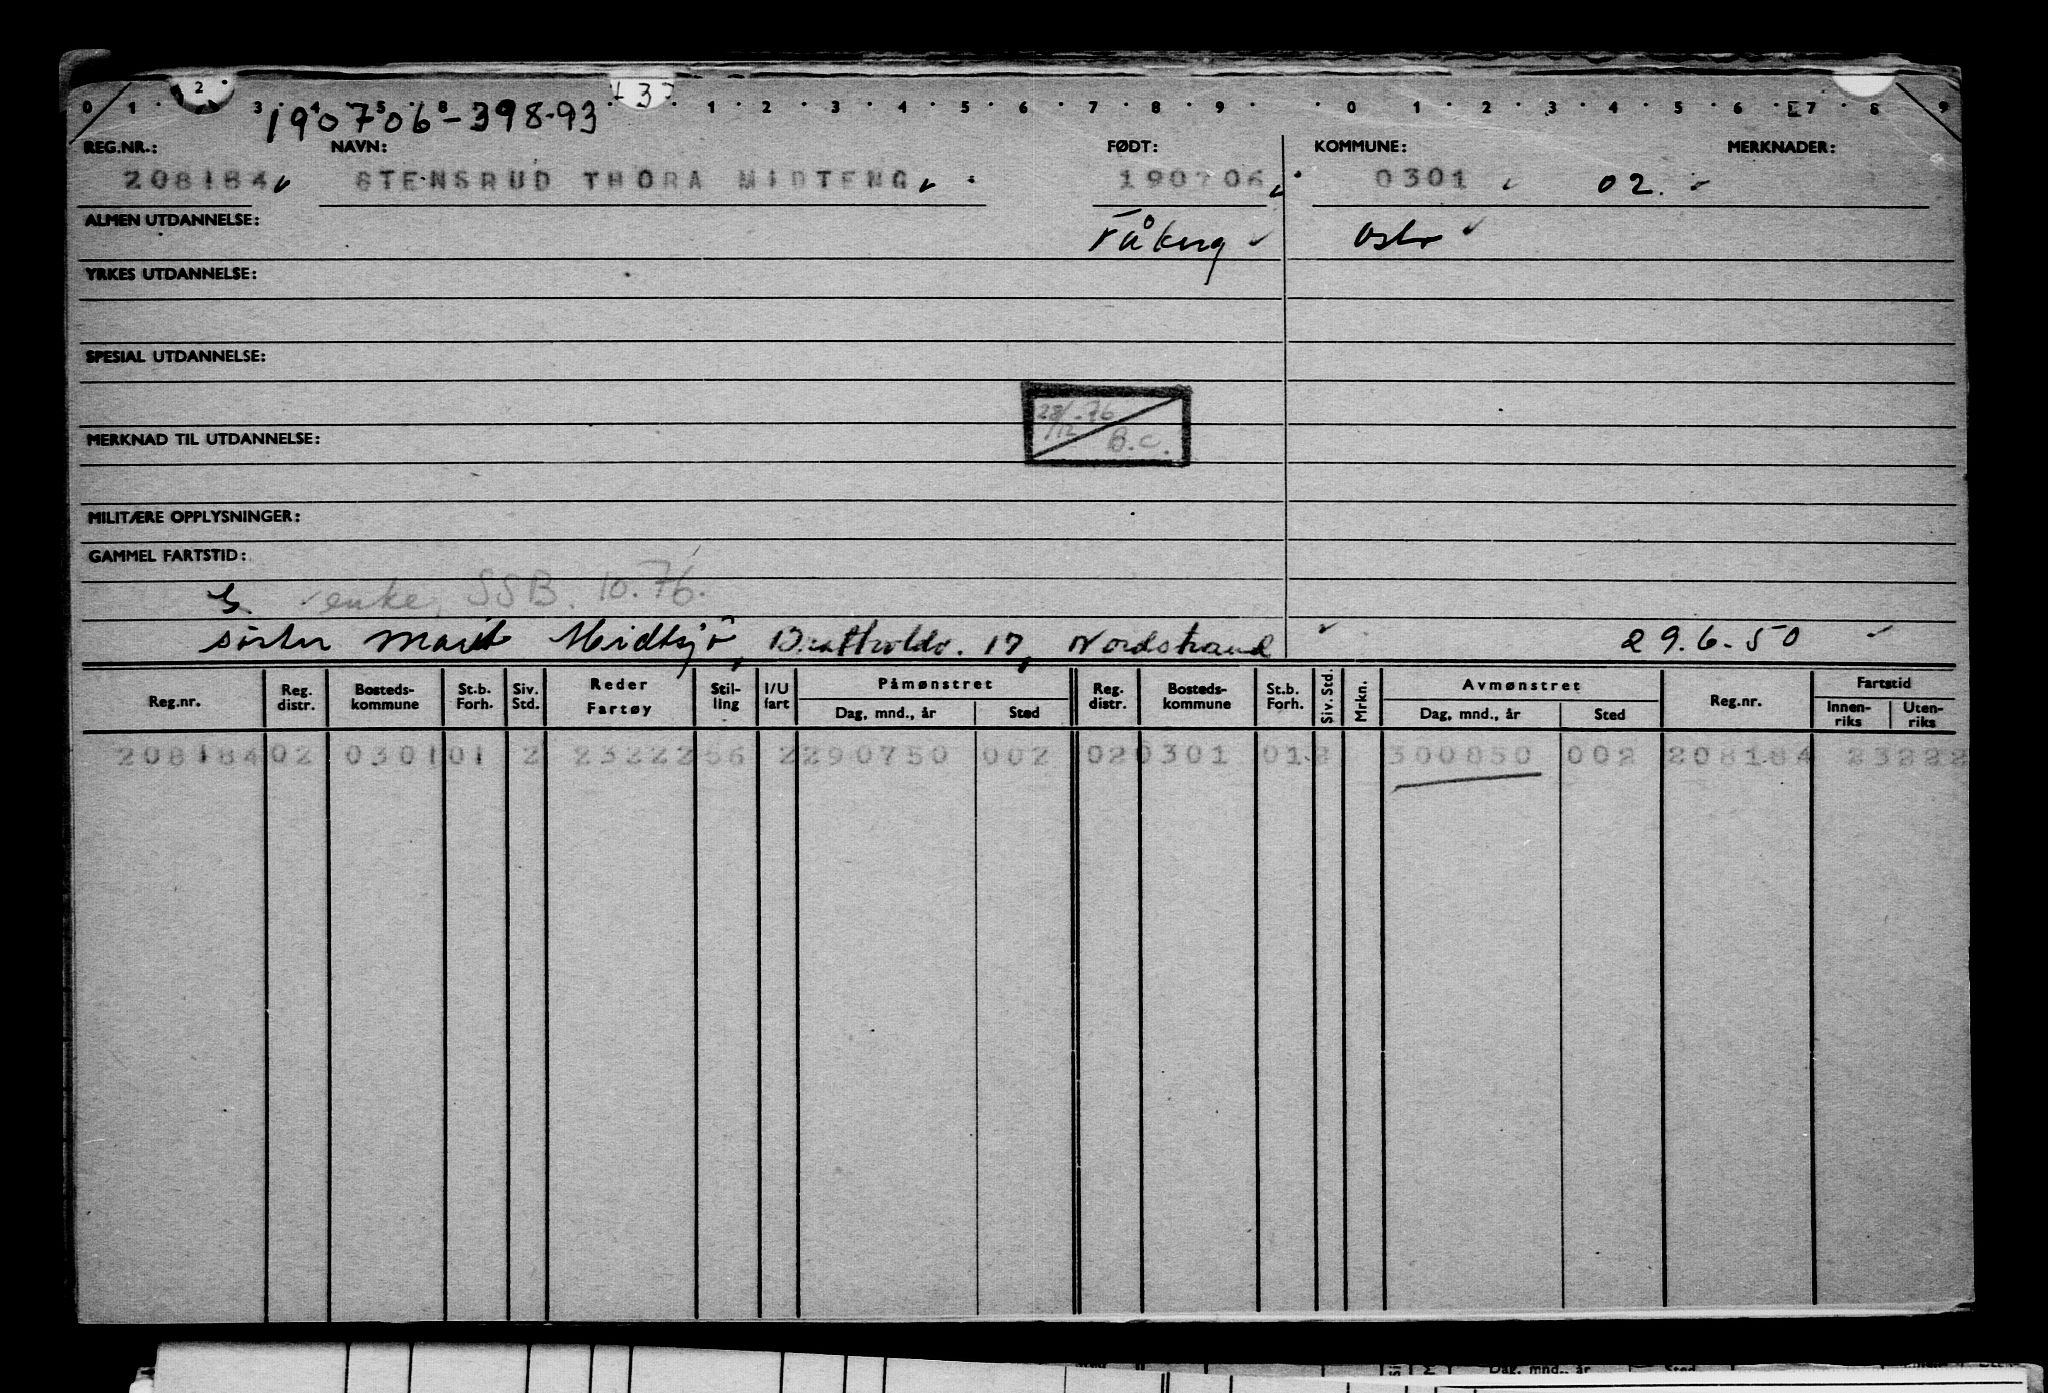 0 1 2 3 4 5 6 3 1 2 3 4 5 6 7 8 9 0 1 2 3 4 5 6 7 8 9
190706-398-93
REG.NR.: NAVN: FØDT: KOMMUNE: MERKNADER:
208184 STENSRUD THORA MIDTENG 190706 0301 02.
ALMEN UTDANNELSE: Fåberg Oslo
YRKES UTDANNELSE:
SPESIAL UTDANNELSE:
28/12-76
B.C.
MERKNAD TIL UTDANNELSE:
MILITÆRE OPPLYSNINGER:
GAMMEL FARTSTID:
G. enke, SSB. 10.76.
søster Marit Midtsjø, 17, Nordstrand 29.6.50
Reg.nr. Reg. distr. Bosteds-kommune St.b. Forh. Siv. Std. Reder Fartøy Stil-ling I/U fart Påmønstret Dag, mnd., år Sted Reg. distr. Bosteds-kommune St.b. Forh. Siv. Std. Mrkn. Avmønstret Dag, mnd., år Sted Reg.nr. Fartstid Innen-riks Uten-riks
208184 02 0301 01 2 23222 56 2 290750 002 02 0301 01 2 300850 002 208184 23222
Dag, mnd., år Sted